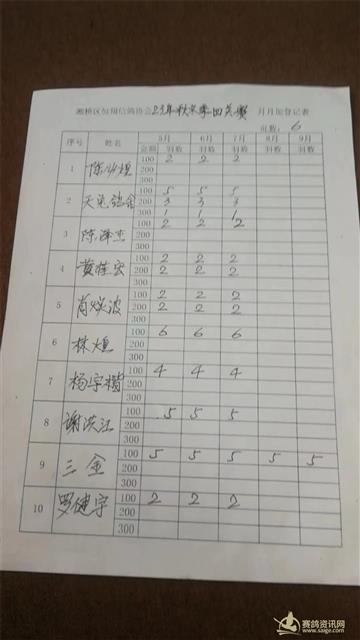 湘桥区恒翔信鸽协会23年秋末第四关赛 月月加登记表
页数: 6
序号 姓名 5月 6月 7月 8月 9月
金额 羽数 羽数 羽数 羽数 羽数
1 100 2 2 2
200
300
2 100 5 5 5
200 3 3 3
300 1 1 1
3 陈泽杰 100 2 2 2
200
300
4 黄桂宏 100 2 2 2
200 2 2 2
300
5 肖焕波 100 2 2 2
200 2 2 2
300
6 林烜 100 6 6 6
200
300
7 杨宇楷 100 4 4 4
200
300
8 谢洪江 100 5 5 5
200
300
9 三金 100 5 5 5 5 5
200
300
10 罗健宇 100 2 2 2
200
300
赛鸽资讯网
www.saige.com